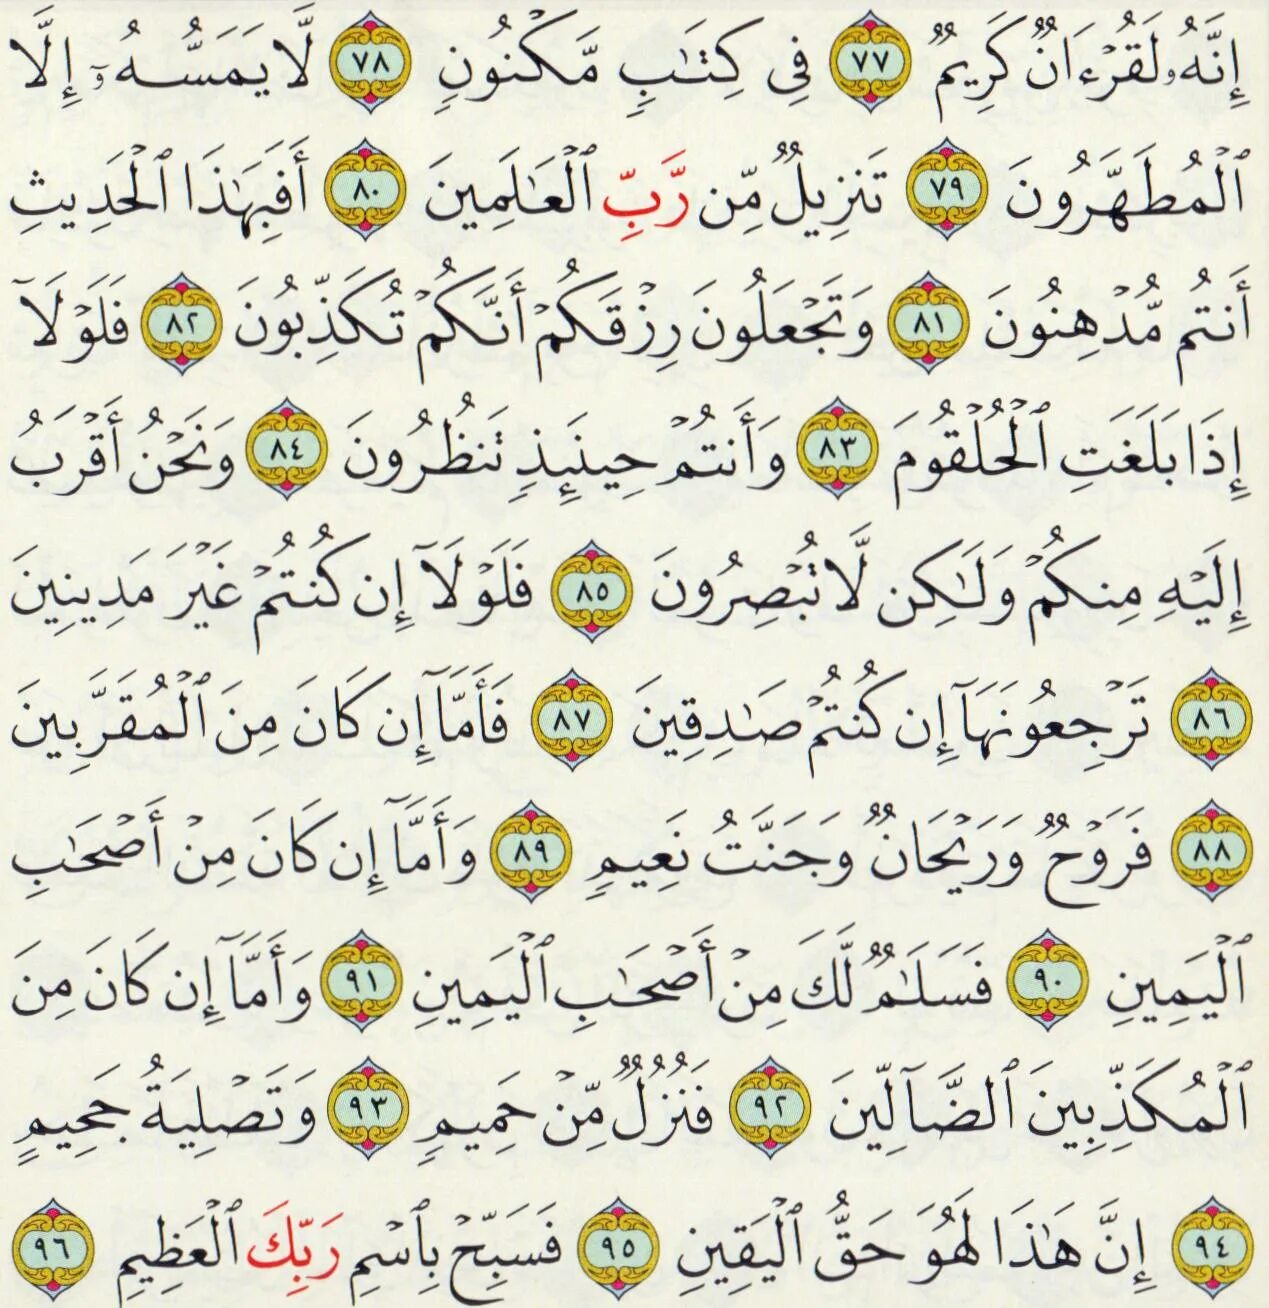 إِنَّهُۥ لَقُرْءَانٌ كَرِيمٌ ٧٧ فِى كِتَٰبٍ مَّكْنُونٍ ٧٨ لَّا يَمَسُّهُۥٓ إِلَّا
ٱلْمُطَهَّرُونَ ٧٩ تَنزِيلٌ مِّن رَّبِّ ٱلْعَٰلَمِينَ ٨٠ أَفَبِهَٰذَا ٱلْحَدِيثِ
أَنتُم مُّدْهِنُونَ ٨١ وَتَجْعَلُونَ رِزْقَكُمْ أَنَّكُمْ تُكَذِّبُونَ ٨٢ فَلَوْلَآ
إِذَا بَلَغَتِ ٱلْحُلْقُومَ ٨٣ وَأَنتُمْ حِينَئِذٍ تَنظُرُونَ ٨٤ وَنَحْنُ أَقْرَبُ
إِلَيْهِ مِنكُمْ وَلَٰكِن لَّا تُبْصِرُونَ ٨٥ فَلَوْلَآ إِن كُنتُمْ غَيْرَ مَدِينِينَ
٨٦ تَرْجِعُونَهَآ إِن كُنتُمْ صَٰدِقِينَ ٨٧ فَأَمَّآ إِن كَانَ مِنَ ٱلْمُقَرَّبِينَ
٨٨ فَرَوْحٌ وَرَيْحَانٌ وَجَنَّتُ نَعِيمٍ ٨٩ وَأَمَّآ إِن كَانَ مِنْ أَصْحَٰبِ
ٱلْيَمِينِ ٩٠ فَسَلَٰمٌ لَّكَ مِنْ أَصْحَٰبِ ٱلْيَمِينِ ٩١ وَأَمَّآ إِن كَانَ مِنَ
ٱلْمُكَذِّبِينَ ٱلضَّآلِّينَ ٩٢ فَنُزُلٌ مِّنْ حَمِيمٍ ٩٣ وَتَصْلِيَةُ جَحِيمٍ
٩٤ إِنَّ هَٰذَا لَهُوَ حَقُّ ٱلْيَقِينِ ٩٥ فَسَبِّحْ بِٱسْمِ رَبِّكَ ٱلْعَظِيمِ ٩٦